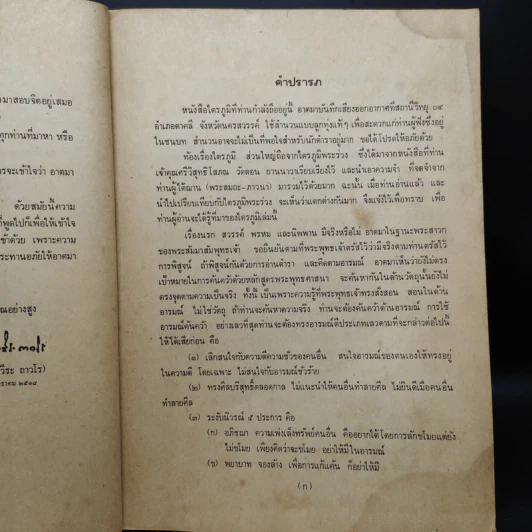 วมาสอบจิตอยู่เสมอ
ทุกท่านที่มาหา หรือ
ารจะเข้าใจว่า อาตมา
ด้วยสมัยนี้ความ
ที่พูดไปก็เพื่อให้เข้าใจ
ช้าด้วย เพราะความ
ระทานอภัยให้อาตมา
ณอย่างสูง
วีระ ถาวโร)
คำปรารภ
หนังสือไตรภูมิที่ท่านกำลังถืออยู่นี้ อาตมาบันทึกเสียงออกอากาศที่สถานีวิทยุ ๐๔
อำเภอตาคลี จังหวัดนครสวรรค์ ใช้สำนวนแบบลูกทุ่งแท้ๆ เพื่อสะดวกแก่ท่านผู้ฟังซึ่งอยู่
ในชนบท สำนวนอาจจะไม่เป็นที่พอใจสำหรับนักตำราอยู่มาก ขอได้โปรดให้อภัยด้วย
ท้องเรื่องไตรภูมิ ส่วนใหญ่ถือจากไตรภูมิพระร่วง ซึ่งได้มาจากหนังสือที่ท่าน
เจ้าคุณศรีวิสุทธิโสภณ วัดดอน ยานนาวาเรียบเรียงไว้ และนำเอาความจำ ที่จดจำจาก
ท่านผู้ได้ฌาน (พระสมถะ-ภาวนา) มารวมไว้ด้วยมาก ฉะนั้น เมื่อท่านอ่านแล้ว และ
นำไปเปรียบเทียบกับไตรภูมิพระร่วง จะเห็นว่าแตกต่างกันมาก จึงแจ้งไว้เพื่อทราบ เพื่อ
ท่านผู้อ่านจะได้รู้ที่มาของไตรภูมิเล่มนี้
เรื่องนรก สวรรค์ พรหม และนิพพาน มีจริงหรือไม่ อาตมาในฐานะพระสาวก
ของพระสัมมาสัมพุทธเจ้า ขอยืนยันตามที่พระพุทธเจ้าตรัสไว้ว่ามีจริงตามท่านตรัสไว้
การพิสูจน์ ถ้าพิสูจน์กันด้วยการอ่านตำรา และคิดตามอารมณ์ อาตมาเห็นว่ายังไม่ตรง
เป้าหมายในการค้นคว้าด้วยหลักสูตรพระพุทธศาสนา จะค้นหากันในด้านวัตถุนั้นยังไม่
ตรงจุดตามความเป็นจริง ทั้งนี้ เป็นเพราะความรู้ที่พระพุทธเจ้าทรงสั่งสอน สอนในด้าน
อารมณ์ ไม่ใช่วัตถุ ถ้าท่านจะค้นหาความจริง ท่านจะต้องค้นคว้าด้านอารมณ์ การใช้
อารมณ์ค้นคว้า อย่างเลวที่สุดท่านจะต้องทรงอารมณ์ดีประเภทเลวตามที่จะกล่าวต่อไปนี้
ให้ได้เสียก่อน คือ
(๑) เลิกสนใจกับความดีความชั่วของคนอื่น สนใจอารมณ์ของตนเองให้ทรงอยู่
ในความดี โดยเฉพาะ ไม่สนใจกับอารมณ์ชั่วร้าย
(๒) ทรงศีลบริสุทธิ์ตลอดกาล ไม่แนะนำให้คนอื่นทำลายศีล ไม่ยินดีเมื่อคนอื่น
ทำลายศีล
(๓) ระงับนิวรณ์ ๕ ประการ คือ
(ก) อภิชฌา ความเพ่งเล็งทรัพย์คนอื่น คืออยากได้โดยการลักขโมยแต่ยัง
ไม่ขโมย เพียงคิดว่าจะขโมย อย่าให้มีในอารมณ์
(ข) พยาบาท จองล้าง เพื่อการแก้แค้น ก็อย่าให้มี
(ก)